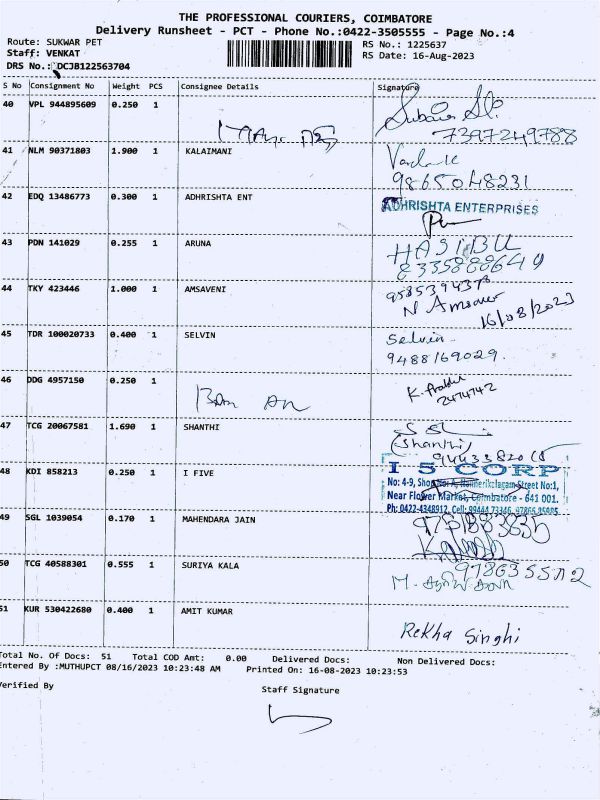 THE PROFESSIONAL COURIERS, COIMBATORE
Delivery Runsheet - PCT - Phone No.:0422-3505555 - Page No.:4
Route: SUKWAR PET
RS No.: 1225637
Staff: VENKAT
RS Date: 16-Aug-2023
DRS No.: DCJB122563704
S No Consignment No Weight PCS Consignee Details Signature
40 VPL 944895609 0.250 1
7397249788
41 NLM 90371803 1.900 1 KALAIMANI
9865048231
42 EDQ 13486773 0.300 1 ADHRISHTA ENT
ADHRISHTA ENTERPRISES
43 PDN 141029 0.255 1 ARUNA
HASIBU
8335888649
44 TKY 423446 1.000 1 AMSAVENI
9585394378
N Amsaver
16/08/2023
45 TDR 100020733 0.400 1 SELVIN
Selvin
9488169029
46 DDG 4957150 0.250 1
2474742
47 TCG 20067581 1.690 1 SHANTHI
(Shanthi)
48 KDI 858213 0.250 1 I FIVE
I 5 CORP
No: 4-9, Street No:1,
Near Flower Market, Coimbatore - 641 001.
Ph: 0422-4348912, Cell: 99444 73346,
49 SGL 1039054 0.170 1 MAHENDARA JAIN
50 TCG 40588301 0.555 1 SURIYA KALA
M.
51 KUR 530422680 0.400 1 AMIT KUMAR
Rekha Singhi
Total No. Of Docs: 51 Total COD Amt: 0.00 Delivered Docs: Non Delivered Docs:
Entered By :MUTHUPCT 08/16/2023 10:23:48 AM Printed On: 16-08-2023 10:23:53
Verified By Staff Signature